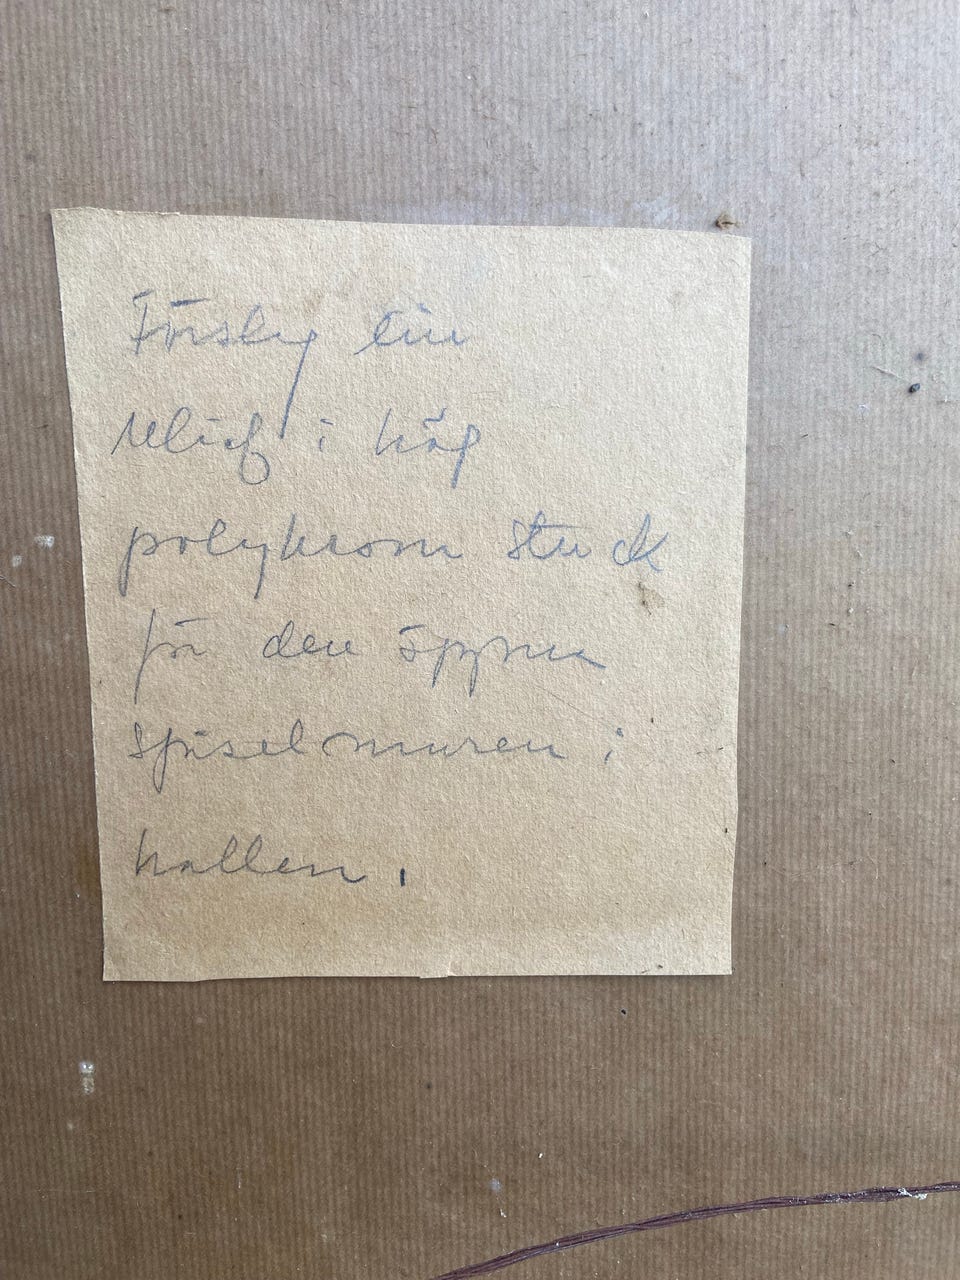 Förslag till
relief i hög
polykrom stuck
för den öppna
spiselmuren i
hallen.